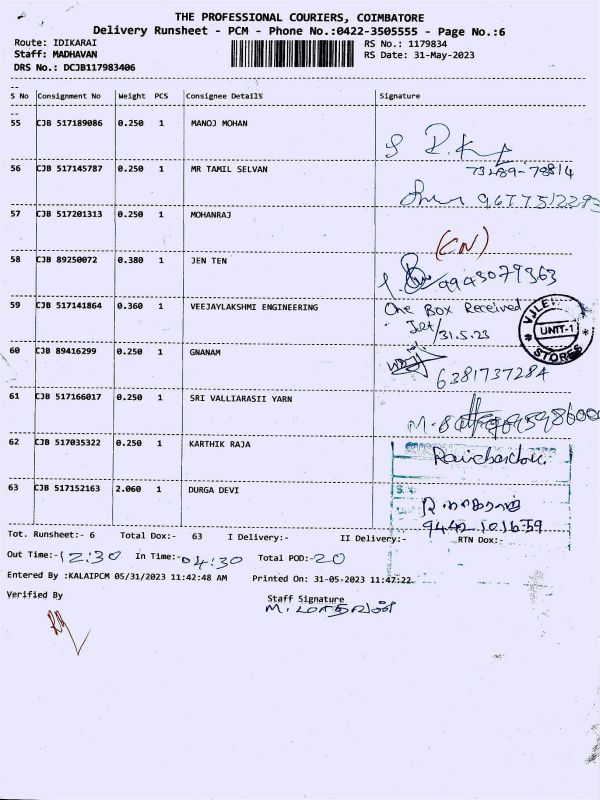 THE PROFESSIONAL COURIERS, COIMBATORE
Delivery Runsheet - PCM - Phone No.:0422-3505555 - Page No.:6
Route: IDIKARAI RS No.: 1179834
Staff: MADHAVAN RS Date: 31-May-2023
DRS No.: DCJB117983406
S No Consignment No Weight PCS Consignee Details Signature
55 CJB 517189086 0.250 1 MANOJ MOHAN
56 CJB 517145787 0.250 1 MR TAMIL SELVAN
57 CJB 517201313 0.250 1 MOHANRAJ
(CN)
58 CJB 89250072 0.380 1 JEN TEN
9943079363
59 CJB 517141864 0.360 1 VEEJAYLAKSHMI ENGINEERING One Box Received
31.5.23
VJLE
UNIT-1
STORES
60 CJB 89416299 0.250 1 GNANAM
6381737284
61 CJB 517166017 0.250 1 SRI VALLIARASII YARN
62 CJB 517035322 0.250 1 KARTHIK RAJA
63 CJB 517152163 2.060 1 DURGA DEVI
9442101659
Tot. Runsheet:- 6 Total Dox:- 63 I Delivery:- II Delivery:- RTN Dox:-
Out Time:- 12:30 In Time:- 04:30 Total POD:- 20
Entered By :KALAIPCM 05/31/2023 11:42:48 AM Printed On: 31-05-2023 11:47:22
Verified By Staff Signature
M. மாதவன்